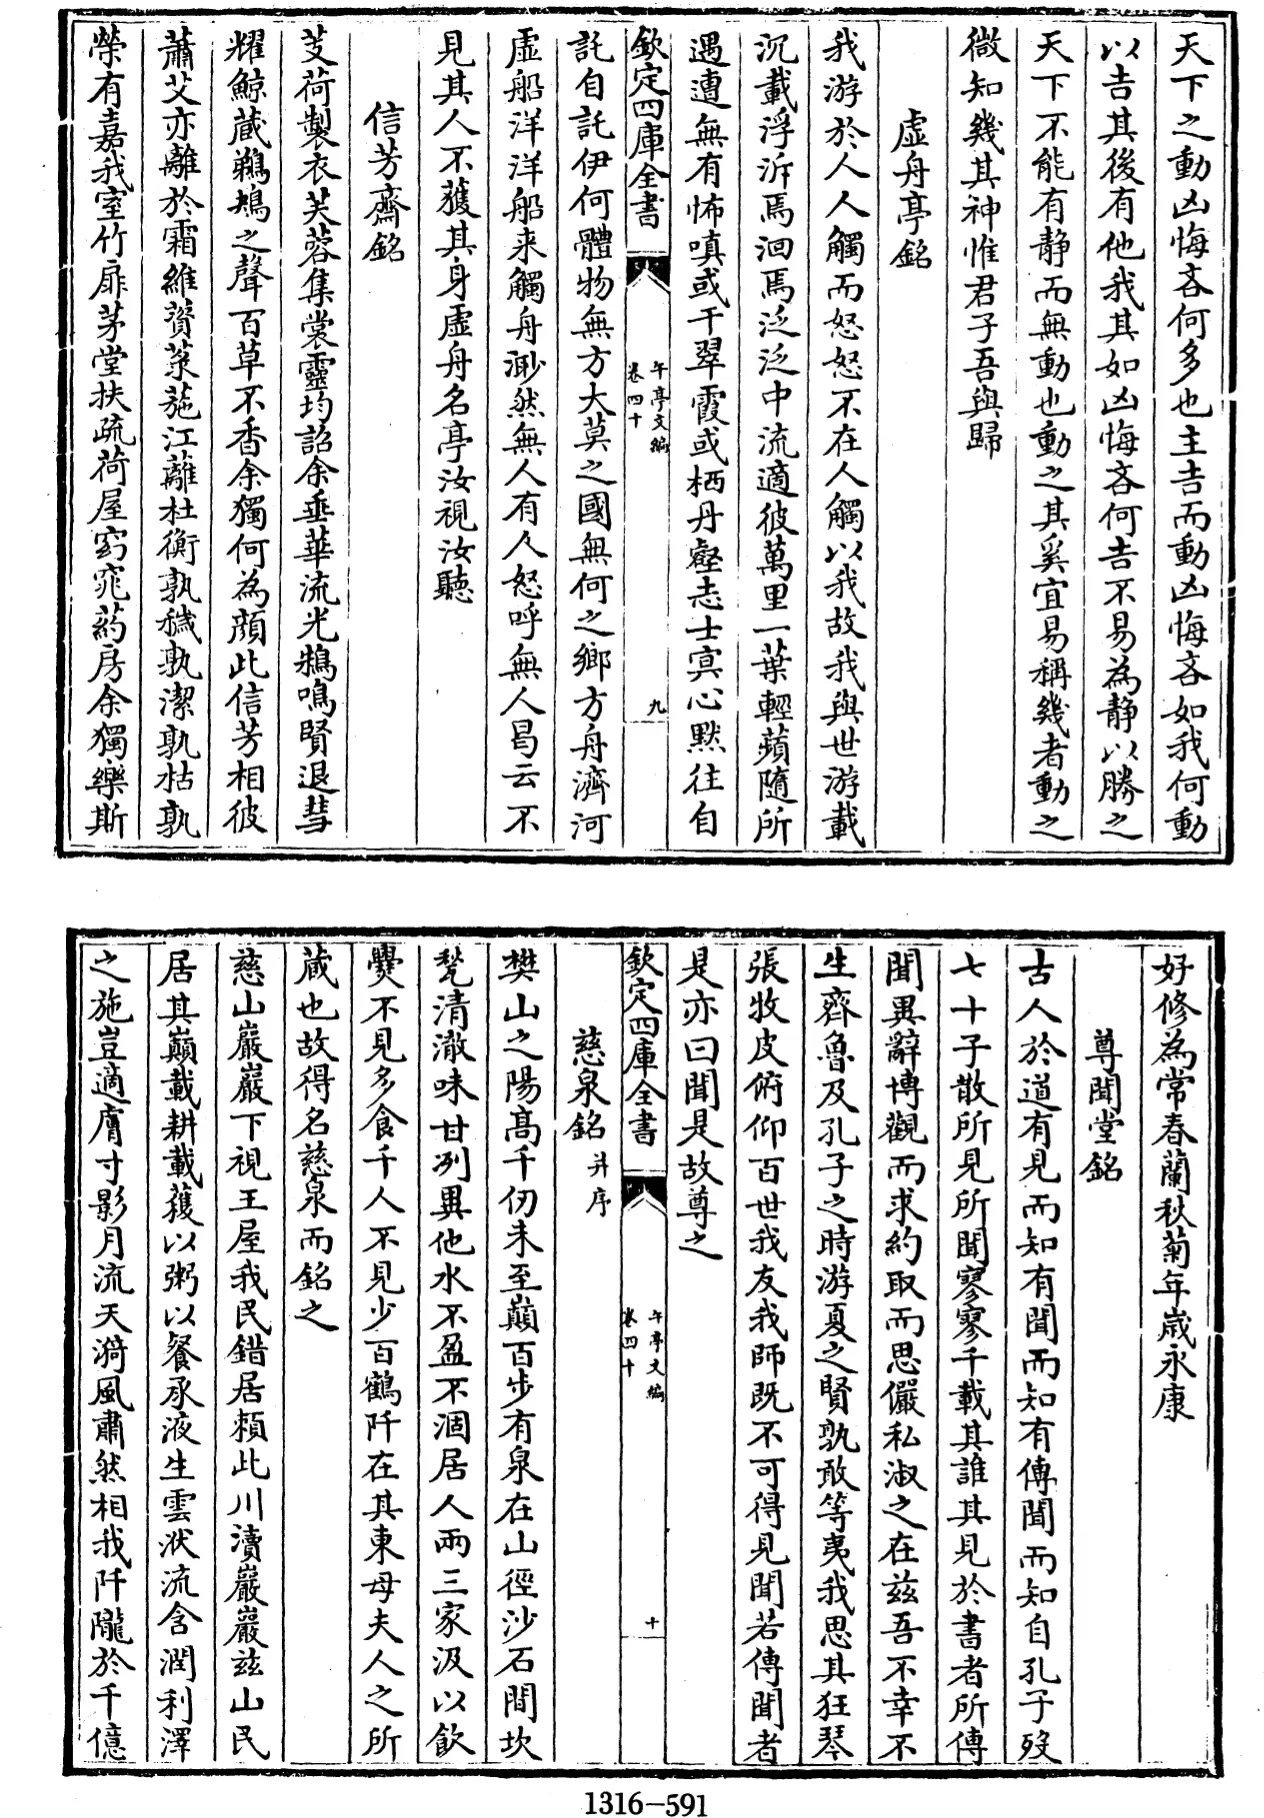 天下之動凶悔吝何多也主吉而動凶悔吝如我何動
以吉其後有他我其如凶悔吝何吉不易為静以勝之
天下不能有静而無動也動之其奚宜易稱幾者動之
微知幾其神惟君子吾與歸
虚舟亭銘
我游於人人觸而怒怒不在人觸以我故我與世游載
沉載浮泝焉洄焉泛泛中流適彼萬里一葉輕蘋隨所
遇遭無有怖嗔或干翠霞或栖丹壑志士㝠心黙往自
欽定四庫全書
午亭文編
卷四十
九
託自託伊何體物無方大莫之國無何之鄉方舟濟河
虚船洋洋船来觸舟渺然無人有人怒呼無人曷云不
見其人不獲其身虚舟名亭汝視汝聽
信芳齋銘
芰荷製衣芙蓉集裳靈均詔余垂華流光鵜鳴賢退彗
耀鯨蔵鵜鴂之聲百草不香余獨何為顔此信芳相彼
蕭艾亦離於霜維薋菉葹江蘺杜衡孰穢孰潔孰枯孰
榮有嘉我室竹扉茅堂扶疏荷屋窈窕葯房余獨樂斯
好修為常春蘭秋菊年歲永康
尊聞堂銘
古人於道有見而知有聞而知有傳聞而知自孔子歿
七十子散所見所聞寥寥千載其誰其見於書者所傳
聞異辭博觀而求約取而思儼私淑之在兹吾不幸不
生齊魯及孔子之時游夏之賢孰敢等夷我思其狂琴
張牧皮俯仰百世我友我師既不可得見聞若傳聞者
是亦曰聞是故尊之
欽定四庫全書
午亭文編
卷四十
十
慈泉銘并序
樊山之陽髙千仞未至巔百步有泉在山徑沙石間坎
甃清澈味甘冽異他水不盈不涸居人兩三家汲以飲
爨不見多食千人不見少百鶴阡在其東母夫人之所
蔵也故得名慈泉而銘之
慈山巖巖下視王屋我民錯居頼此川瀆巖巖兹山民
居其巔載耕載穫以粥以餐承液生雲洑流含潤利澤
之施豈適膚寸影月流天漪風肅然相我阡隴於千億
1316-591